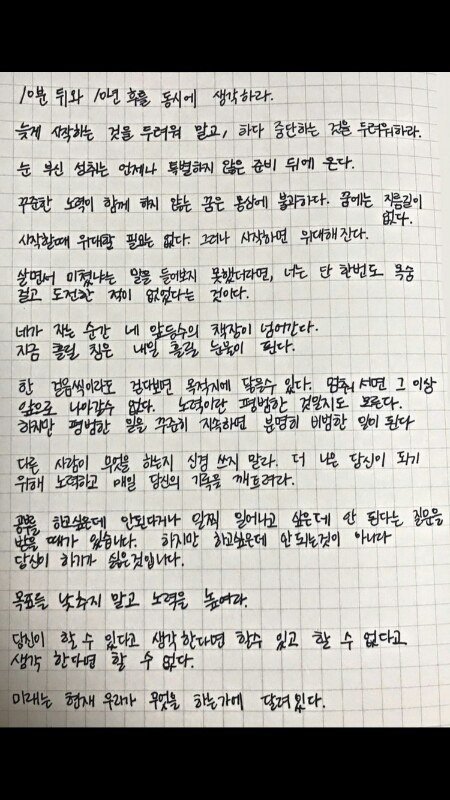 10분 뒤와 10년 후를 동시에 생각하라.
늦게 시작하는 것을 두려워 말고, 하다 중단하는 것을 두려워하라.
눈 부신 성취는 언제나 특별하지 않은 준비 뒤에 온다.
꾸준한 노력이 함께 하지 않는 꿈은 몽상에 불과하다. 꿈에는 지름길이
없다.
시작할때 위대할 필요는 없다. 그러나 시작하면 위대해진다.
살면서 미쳤냐는 말을 들어보지 못했더라면, 너는 단 한번도 목숨
걸고 도전한 적이 없었다는 것이다.
네가 자는 순간 네 앞등수의 책장이 넘어간다.
지금 흘릴 침은 내일 흘릴 눈물이 된다.
한 걸음씩이라도 걷다보면 목적지에 닿을수 있다. 멈춰 서면 그 이상
앞으로 나아갈수 없다. 노력이란 평범한 것일지도 모른다.
하지만 평범한 일을 꾸준히 지속하면 분명히 비범한 일이 된다
다른 사람이 무엇을 하는지 신경 쓰지 말라. 더 나은 당신이 되기
위해 노력하고 매일 당신의 기록을 깨트려라.
공부를 하고싶은데 안된다거나 일찍 일어나고 싶은데 안 된다는 질문을
받을 때가 있습니다. 하지만 하고싶은데 안 되는것이 아니라
당신이 하기가 싫은것입니다.
목표를 낮추지 말고 노력을 높여라.
당신이 할 수 있다고 생각한다면 할수 있고 할 수 없다고
생각 한다면 할 수 없다.
미래는 현재 우리가 무엇을 하는가에 달려있다.